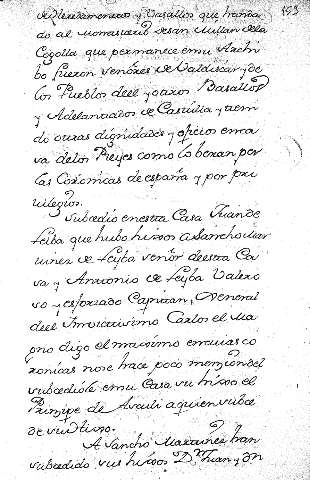 de Heredamientos y Vasallos que han da
do al Monasterio de san Millan de la
Cogolla que permanece en su Archi
bo fueron señores de Valdiscar y de
los Pueblos de el y otros Basallos
y Adelantados de Castilla tenien
do otras dignidades y oficios en ca
sa de los Reyes como lo beran por
las Coronicas de españa y por pri
uilegios.
Subcedio en esta Casa Juan de
Leiba que hubo hixos a Sancho Mar
tinez de Leyba señor de esta Ca
sa y Antonio de Leyba Valero
so y esforzado Capitan, General
de el Imvictissimo Carlos el Ma
gno digo el maximo en cuias co
ronicas no se hace poco menzion del
subcediole en su Casa su hixo el
Prinzipe de Asculi a quien subce
de su ultimo.
A Sancho Martinez han
subcedido sus hixos Dn Juan y Dn